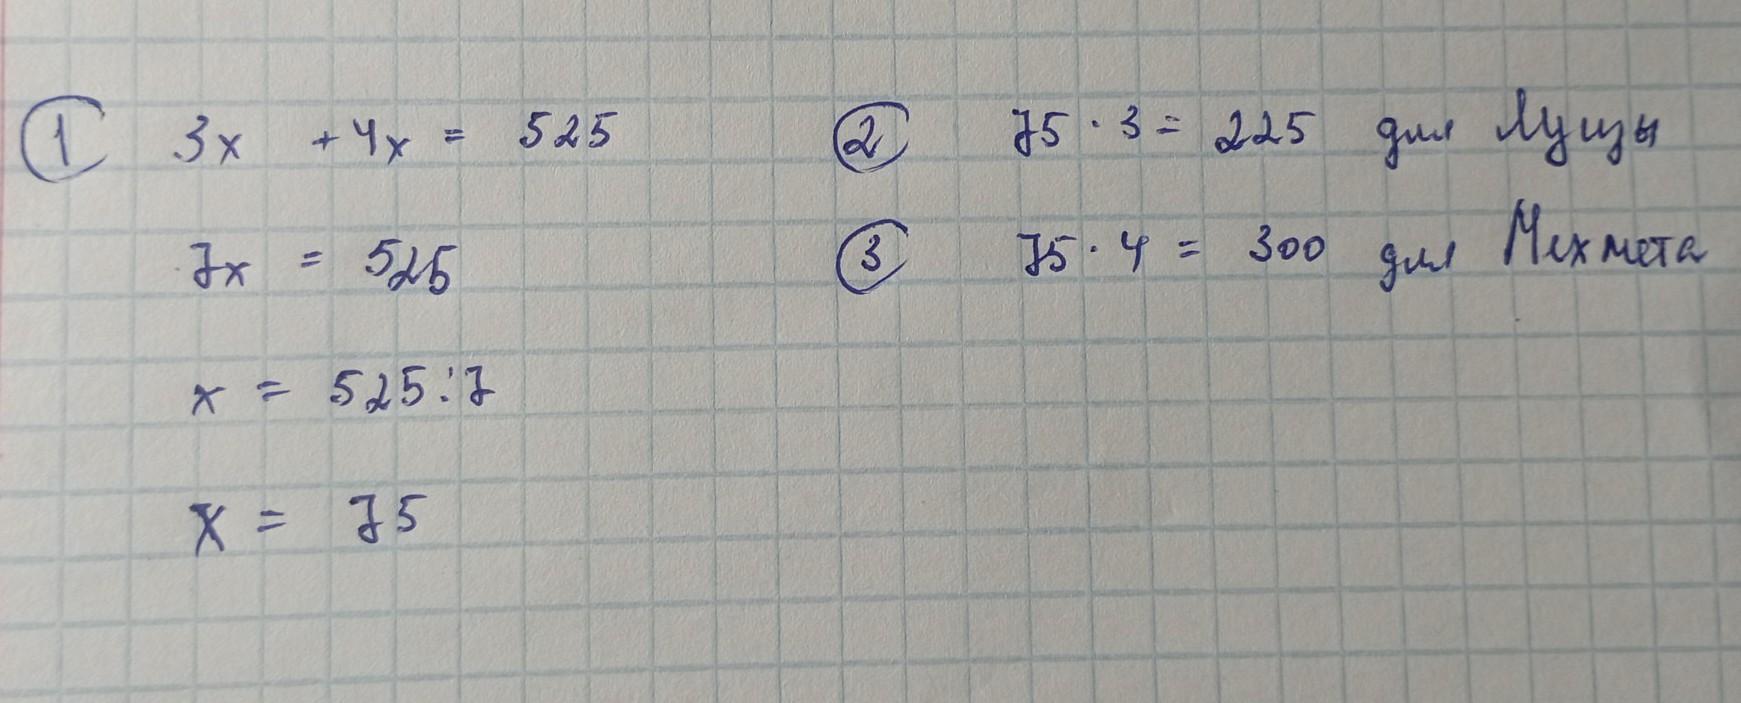 ① 3x + 4x = 525
7x = 525
x = 525:7
x = 75
② 75 · 3 = 225 для Луизы
③ 75 · 4 = 300 для Мехмета